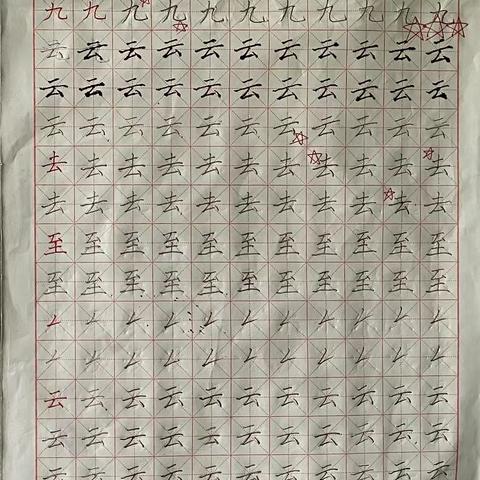 九九九九九九九九九九九
云云云云云云云云云云云
云云云云云云云云云云云
云云云云云云云云云云云
去去去去去去去去去去去
去去去去去去去去去去去
至至至至至至至至至至至
至至至至至至至至至至至
ㄥㄥㄥㄥㄥㄥㄥㄥㄥㄥㄥ
ㄥㄥㄥㄥㄥㄥㄥㄥㄥㄥㄥ
云云云云云云云云云云云
云云云云云云云云云云云
云云云云云云云云云云云